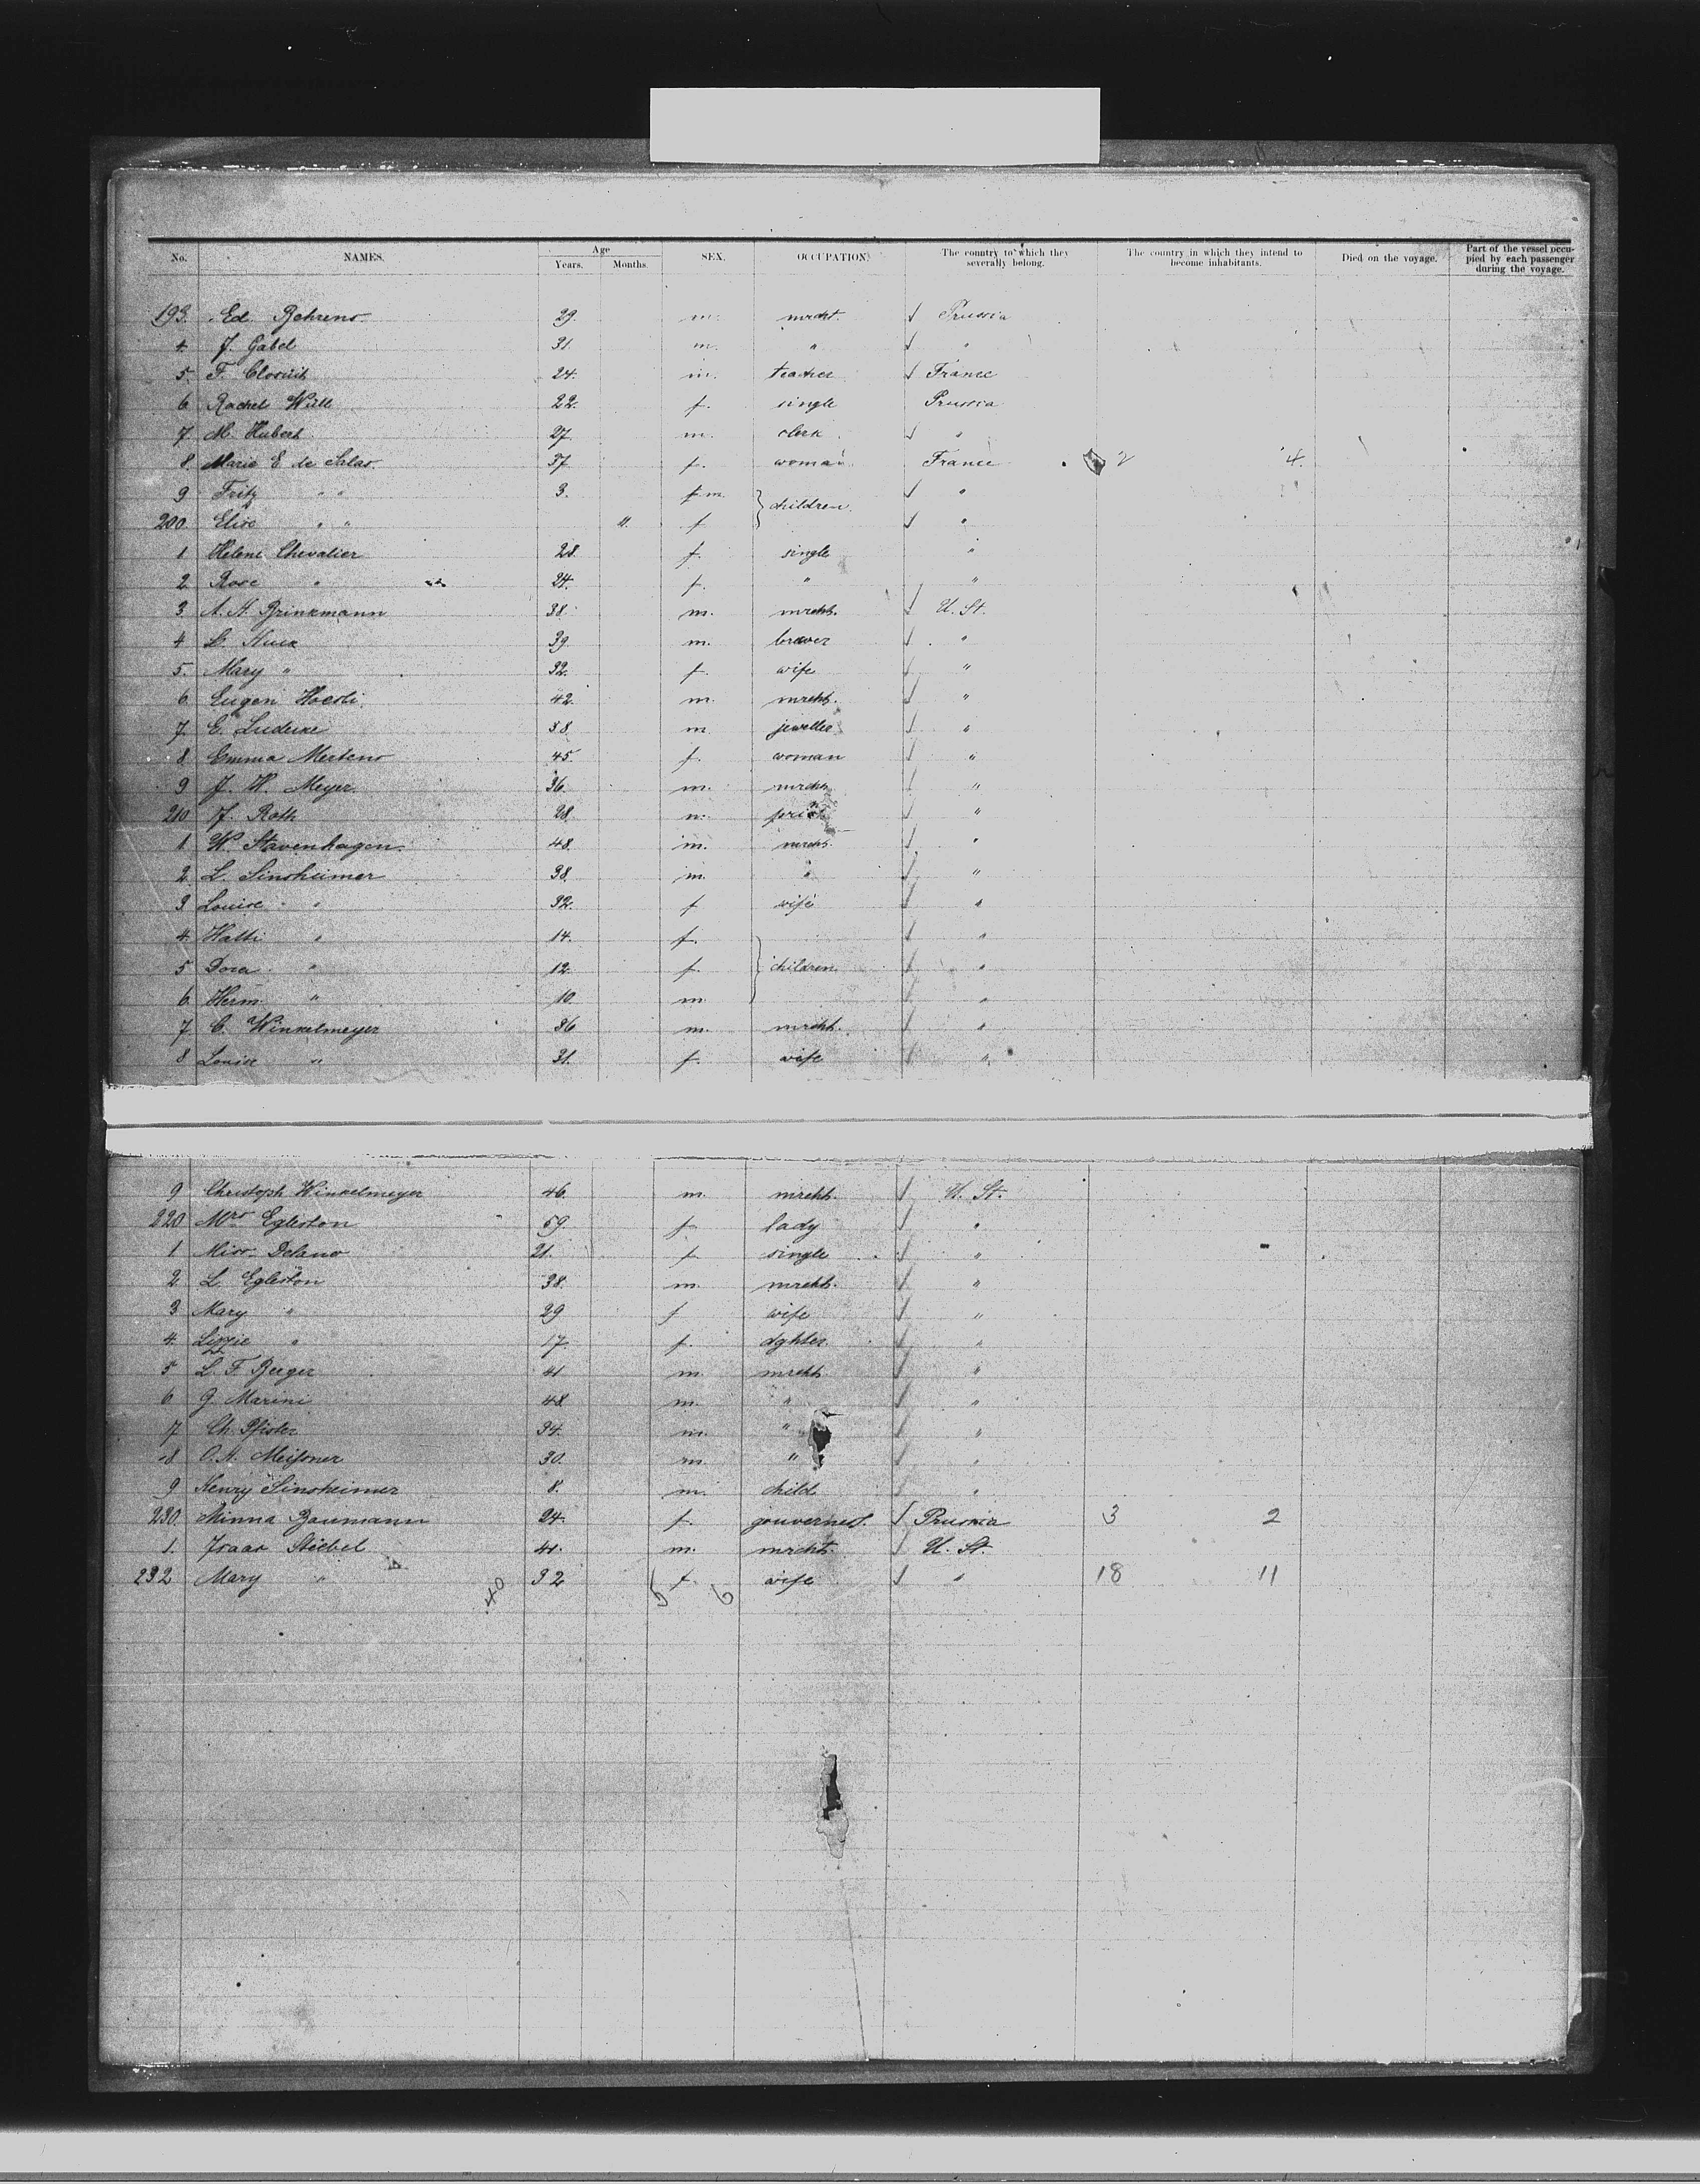 No. NAMES. Age Years. Months. SEX. OCCUPATION. The country to which they severally belong. The country in which they intend to become inhabitants. Died on the voyage. Part of the vessel occupied by each passenger during the voyage.
193. Ed. Behrens 29. m. mrcht. Prussia
4. J. Gabel 31. m. " "
5. F. 24. m. teacher France
6. Rachel Wüll 22. f. single Prussia
7. M. Hubert 27 m. clerk "
8. Marie E. de Salas 37 f. woman France 2 4.
9 Fritz " " 3. m. } children "
200. Elise " " 11. f. "
1 Helene Chevalier 28 f. single "
2 Rose " 24. f. " "
3 A. H. Brinkmann 38. m. mrcht. U. St.
4 39. m. brewer "
5. Mary " 32. f. wife "
6. Eugen 42. m. mrcht. "
7. E. Lüdeke 38 m. jeweller "
8 Emma Mertens 45. f. woman "
9 J. W. Meyer 36 m. mrcht "
210 J. Roth 28. m. "
1. W. Stavenhagen 48. m. mrcht. "
2. L. Sinsheimer 38. m. " "
3 Louise " 32. f wife "
4. Hatti " 14. f. "
5 Dora " 12. f. } children "
6. Herm. " 10. m. "
7. C. Winkelmeyer 36 m. mrcht. "
8 Louise " 31. f. wife "
9 Christoph Winkelmeyer 46. m. mrcht. U. St.
220 Mrs. Egleston 59. f. lady "
1 Miss Delano 21. f single "
2 L. Egleston 38. m. mrcht. "
3 Mary " 29 f wife "
4. Lizzie " 17. f. dghter. "
5 L. F. Berger 41 m. mrcht. "
6 G. Marini 48 m. " "
7 Ch. Pfister 34. m. " "
8 O. H. Meißner 30. m. " "
9 Henry Sinsheimer 8. m. child "
230. Minna Baumann 24. f. gouverness. Prussia 3 2
1. Isaac Stiebel 41. m. mrcht. U. St.
232 Mary " 32 f. wife " 18 11
40 5 6